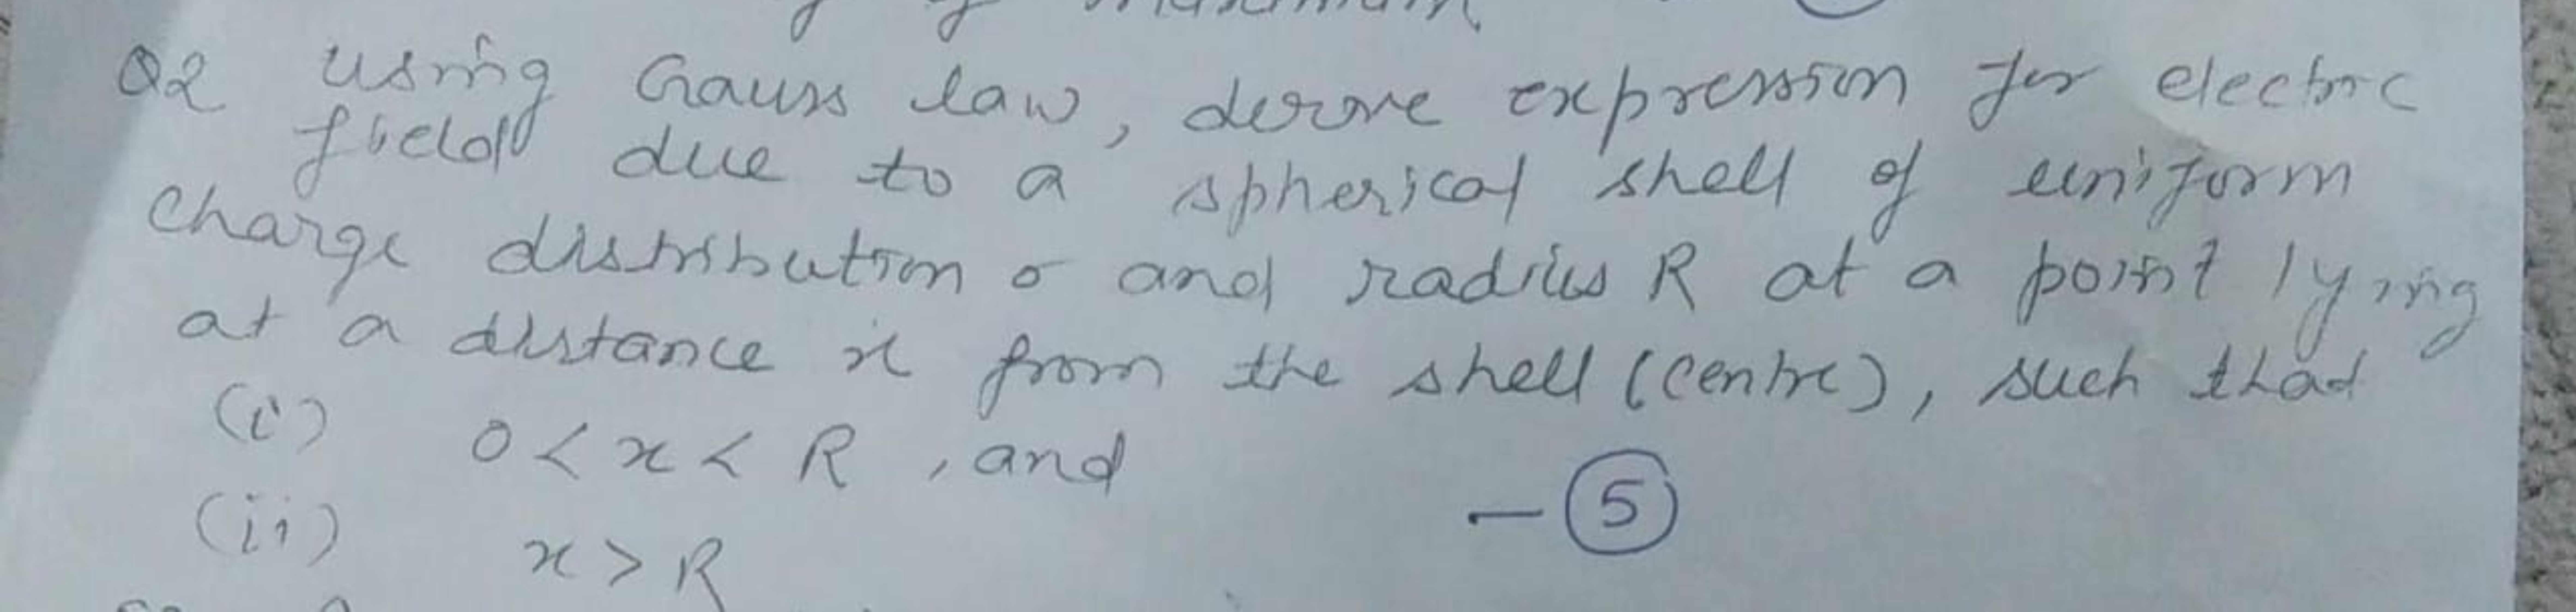 Q2 using Gauss law, derive expression for electric
field due to a spherical shell of uniform
charge distribution σ and radius R at a point lying
at a distance x from the shell (centre), such that
(i) 0 < x < R , and
— 5
(ii) x > R